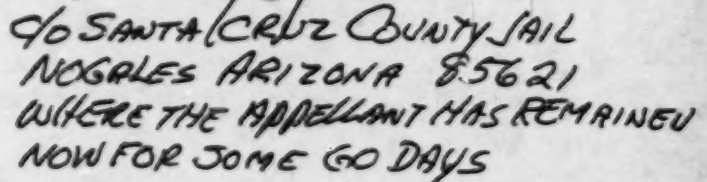 c/o SANTA CRUZ COUNTY JAIL
NOGALES ARIZONA 85621
WHERE THE APPELLANT HAS REMAINED
NOW FOR SOME 60 DAYS